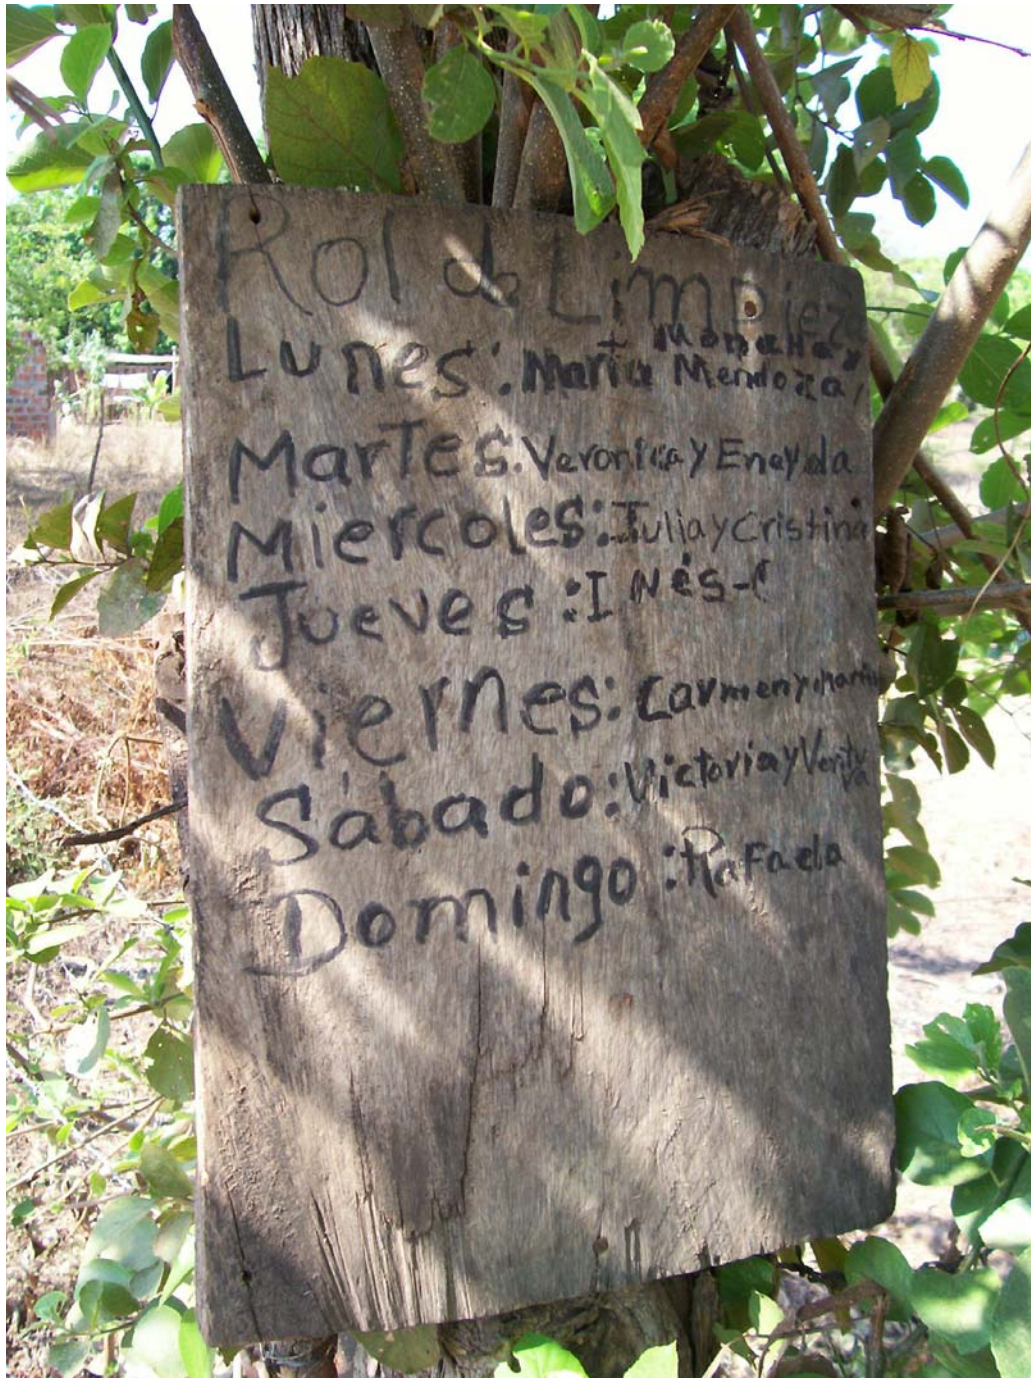 Rol de Limpieza
Lunes: Maria Mendoza,
Martes: Veronica y Eneyda
Miercoles: Julia y Cristina
Jueves: INés-C
Viernes: Carmen y
Sábado: Victoria y Ventura
Domingo: Rafaela